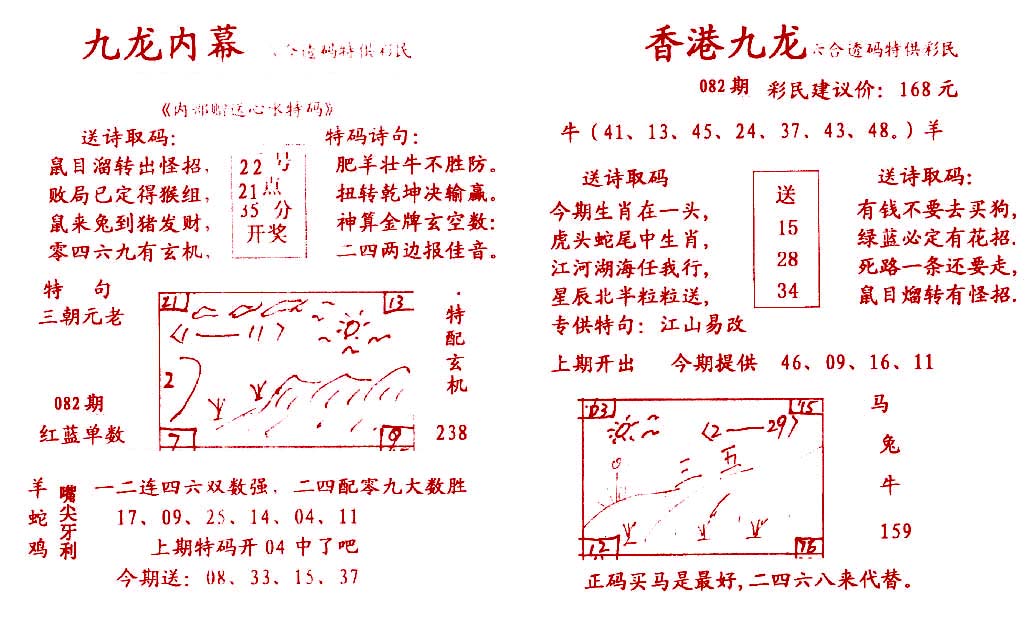 九龙内幕
六合透码特供彩民
《内部赠送心水特码》
送诗取码:
鼠目溜转出怪招,
败局已定得猴组,
鼠来兔到猪发财,
零四六九有玄机,
22号
21点
35分
开奖
特码诗句:
肥羊壮牛不胜防。
扭转乾坤决输赢。
神算金牌玄空数:
二四两边报佳音。
特 句
三朝元老
082期
红蓝单数
21
13
〈1——11〉
2
7
9
特配玄机
238
羊
蛇
鸡
嘴尖牙利
一二连四六双数强、二四配零九大数胜
17、09、25、14、04、11
上期特码开04中了吧
今期送: 08、33、15、37
香港九龙
六合透码特供彩民
082期 彩民建议价: 168元
牛(41、13、45、24、37、43、48。)羊
送诗取码
今期生肖在一头,
虎头蛇尾中生肖,
江河湖海任我行,
星辰北半粒粒送,
专供特句: 江山易改
送
15
28
34
送诗取码:
有钱不要去买狗,
绿蓝必定有花招.
死路一条还要走,
鼠目熘转有怪招.
上期开出 今期提供 46、09、16、11
03
45
〈2——29〉
三五
12
马
兔
牛
159
正码买马是最好,二四六八来代替。